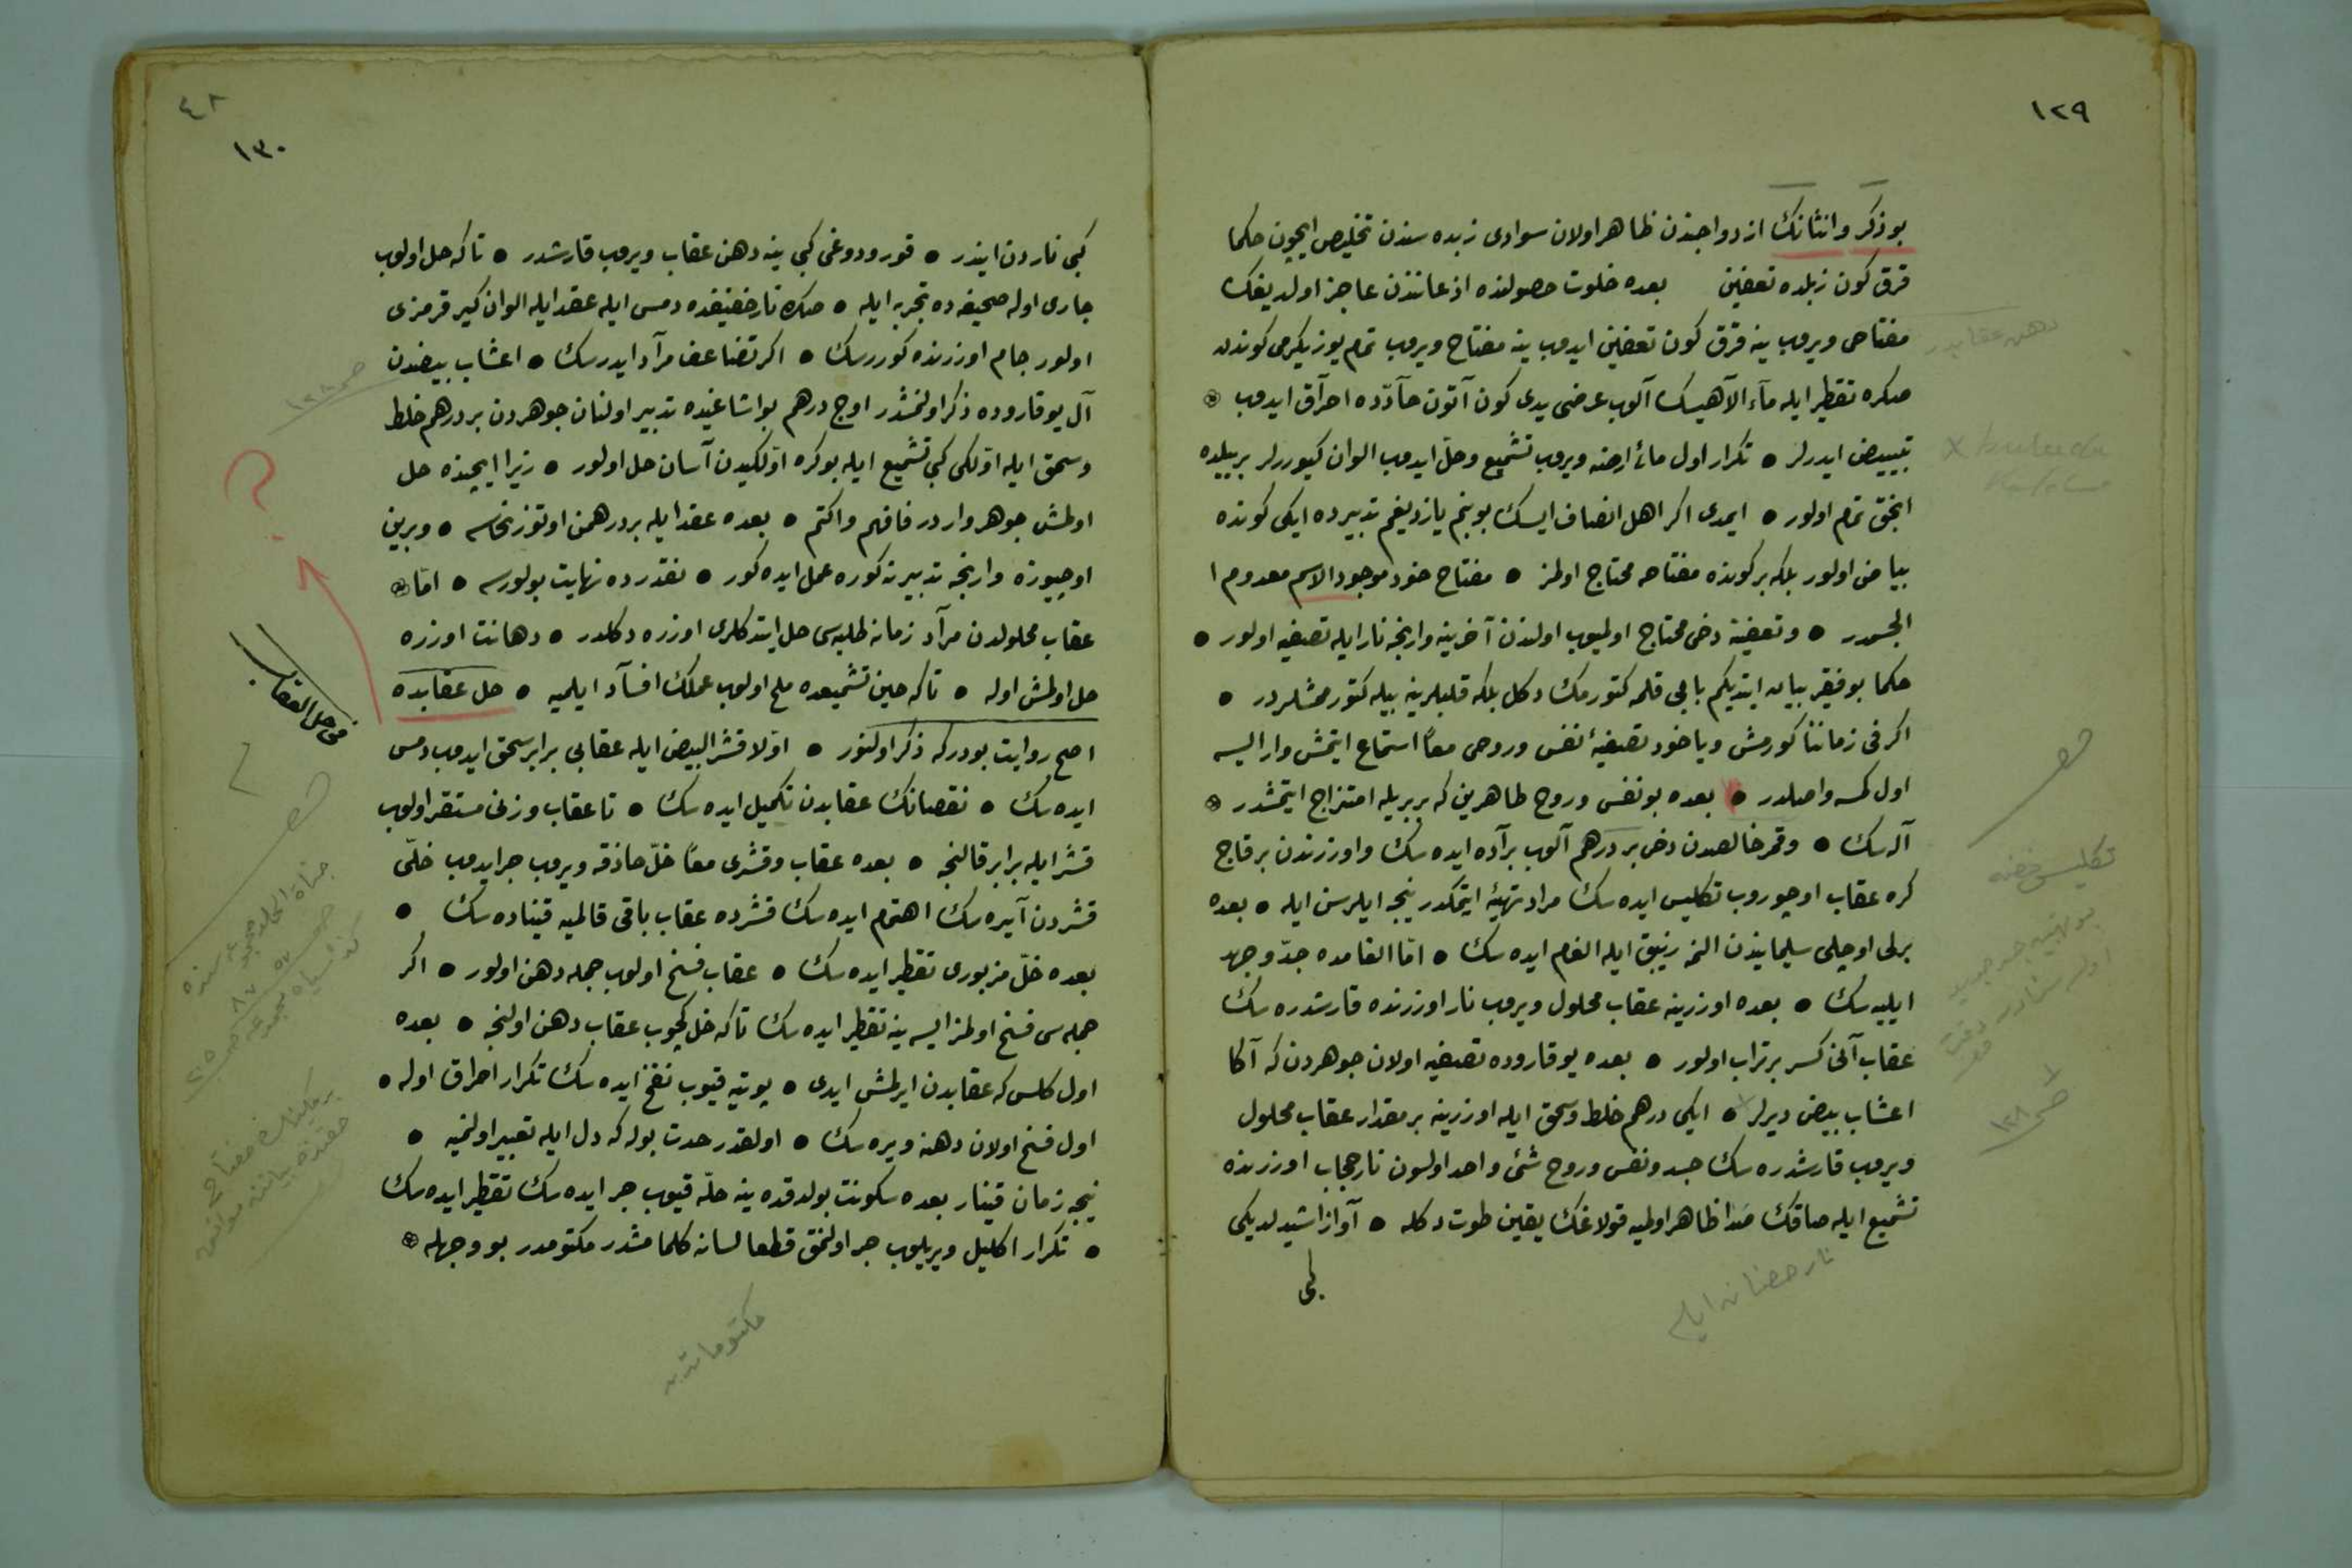 ١٢٩
بو ذكر وانثانك ازدواجندن ظاهر اولان سوادى زبده سندن تخليص ايچون حكما
قرق كون زبلده تعفين بعده خلوت حصولنده اذعاننذن عاجز اولديغك
مفتاحى ويروب ينه قرق كون تعفين ايدوب ينه مفتاح ويروب تمام يوز يكرمى كوندن
صكره تقطير ايله ماء الآهيسك آلوب عرضى يدى كون آتون حآدّده احرآق ايدوب
تبييض ايدرلر ● تكرار اول مائ ارضنه ويروب تشميع وحلّ ايدوب الوان كيوررلر بر ييلده
انجق تمام اولور ● ايمدى اكر اهل انصاف ايسك بو بنم يازديغم تدبيرده ايكى كونده
بياض اولور بلكه بر كونده مفتاحه محتاج اولمز ● مفتاح خود موجود الاسم معدوم ا
لجسمدر ● وتعفينه دخى محتاج اولميوب اولندن آخرينه وارنجه نار ايله تصفيه اولور ●
حكما بو فقير بيان ايتديكم بابى قلمه كتورمك دكل بلكه قلبلرينه بيله كتورممشلردر ●
اكر فى زماننا كورمش وياخود تصفيهٔ نفس وروحى معاً استماع ايتمش وار ايسه
اول كمسه واصلدر ● بعده بو نفس وروح طاهرين كه بربريله امتزاج ايتمشدر
آله سك ● وقمر خالصدن دخى بر درهم آلوب برآده ايده سك واوزرندن بر قاچ
كره عقاب اوچوروب تكليس ايده سك مراد تهيئه ايتمكدر نيجه ايلرسن ايله ● بعده
برلى اوچلى سليمانيذن النمه زيبق ايله الغام ايده سك ● امّا الغامده جدّ وجهد
ايليه سك ● بعده اوزرينه عقاب محلول ويروب نار اوزرنده قارشدره سك
عقاب آنى كسر بر تراب اولور ● بعده يوقاروده تصفيه اولان جوهردن كه آكا
اعشاب بيض ديرلر ● ايكى درهم خلط وسحق ايله اوزرينه بر مقدار عقاب محلول
ويروب قارشدره سك جسد ونفس وروح شئ واحد اولسون نار حجاب اوزرنده
تشميع ايله صاقك صدا ظاهر اولميه قولاغك يقين طوت دكله ● آواز اشيدلديكى
كبى
دهن عقابدر
تكليس فضه
ص ١٢٨
نار حضانه ايله
٤٨
١٣٠
كبى ناردن ايندر ● قور ودوغى كبى ينه دهن عقاب ويروب قارشدر ● تا كه حل اولوب
جارى اوله صحيفه ده تجربه ايله ● صكره نار خفيفده دمس ايله عقد ايله الوان كير قرمزى
اولور جام اوزرنده كوررسك ● اكر تضاعف مرآد ايدرسك ● اعشاب بيضدن
آل يوقاروده ذكر اولنمشدر اوچ درهم بو اشاغيده تدبير اولنان جوهردن بر درهم خلط
وسحق ايله اوّلكى كبى تشميع ايله بو كره اوّلكيدن آسان حل اولور ● زيرا ايچنده حل
اولمش جوهر واردر فافهم واكتم ● بعده عقد ايله بر درهمن اوتوز نحاسه ● وبرين
اوچيوزه وارنجه تدبير نه كوره عمل ايده كور ● نقدرده نهايت بولورسه ● امّا
عقاب محلولدن مرآد زمانه طلبه سى حل ايتدكلرى اوزره دكلدر ● دهانت اوزره
حل اولمش اوله ● تا كه حين تشميعده ملح اولوب عملك افسآد ايلميه ● حل عقابده
اصح روايت بودركه ذكر اولنور ● اوّلا قشر البيض ايله عقابى برابر سحق ايدوب دمس
ايده سك ● نقصانك عقابدن تكميل ايده سك ● تا عقاب وزنى مستقر اولوب
قشر ايله برابر قالنجه ● بعده عقاب وقشرى معاً خلّ حاذقه ويروب جر ايدوب خلّى
قشردن آييره سك اهتمام ايده سك قشرده عقاب باقى قالميه قيناده سك ●
بعده خلّ مزبورى تقطير ايده سك ● عقاب فسخ اولوب جمله دهن اولور ● اكر
جمله سى فسخ اولمز ايسه ينه تقطير ايده سك تا كه خل كچوب عقاب دهن اولنجه ● بعده
اول كلس كه عقابدن ايرلمش ايدى ● بوتيه قيوب نفخ ايده سك تكرار احراق اوله ●
اول فسخ اولان دهنه ويره سك ● اولقدر حدت بوله كه دل ايله تعبير اولنميه ●
نيجه زمان قينار بعده سكونت بولدقده ينه حلّه قيوب جر ايده سك تقطير ايده سك
● تكرار اكليل ويريلوب جر اولنمق قطعا لسانه كلمامشدر مكتومدر بو وجهله
ص ١٢٨
فى حل العقاب
مكتوماتدن